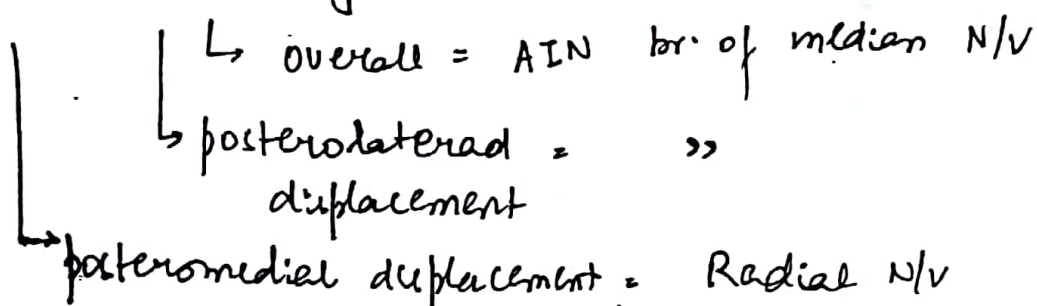 ↳ overall = AIN br. of median N/V
↳ posterolateral = ,,
displacement
→ posteromedial displacement = Radial N/V